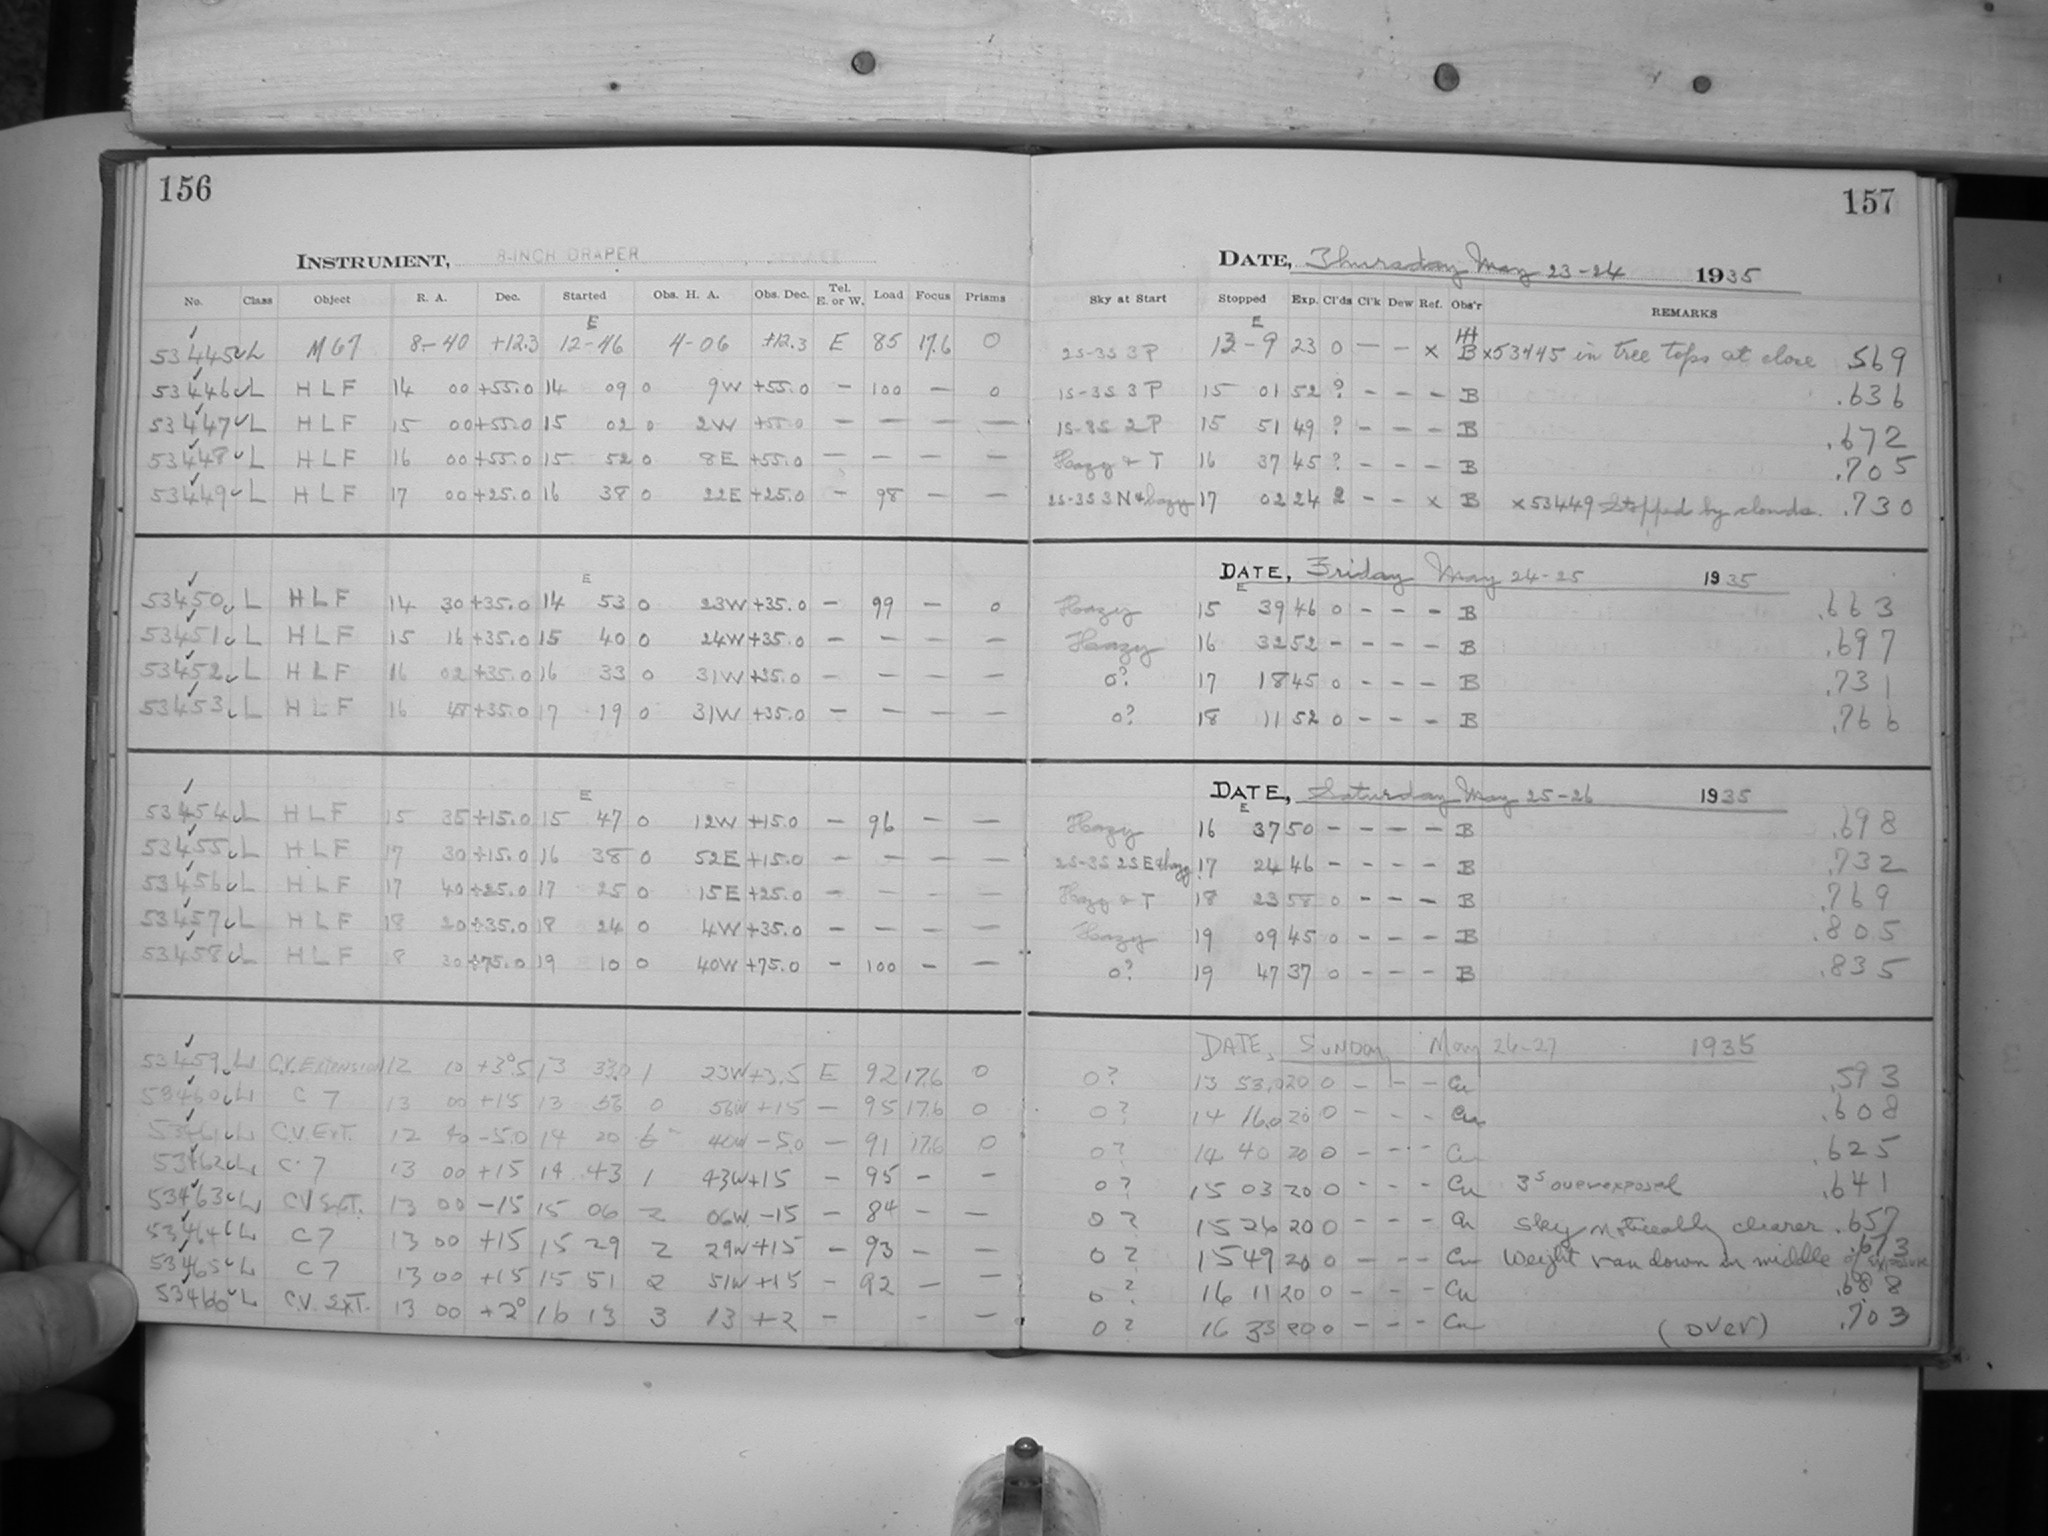 156
INSTRUMENT, 8-INCH DRAPER
No. Class Object R. A. Dec. Started Obs. H. A. Obs. Dec. Tel. E. or W. Load Focus Prisms
E
53445 L M 67 8-40 +12.3 12-46 4-06 +12.3 E 85 17.6 0
53446 L HLF 14 00 +55.0 14 09 0 9W +55.0 - 100 - 0
53447 L HLF 15 00 +55.0 15 02 0 2W +55.0 - - - -
53448 L HLF 16 00 +55.0 15 52 0 8E +55.0 - - - -
53449 L HLF 17 00 +25.0 16 38 0 22E +25.0 - 98 - -
E
53450 L HLF 14 30 +35.0 14 53 0 23W +35.0 - 99 - 0
53451 L HLF 15 16 +35.0 15 40 0 24W +35.0 - - - -
53452 L HLF 16 02 +35.0 16 33 0 31W +35.0 - - - -
53453 L HLF 16 48 +35.0 17 19 0 31W +35.0 - - - -
E
53454 L HLF 15 35 +15.0 15 47 0 12W +15.0 - 96 - -
53455 L HLF 17 30 +15.0 16 38 0 52E +15.0 - - - -
53456 L HLF 17 40 +25.0 17 25 0 15E +25.0 - - - -
53457 L HLF 18 20 +35.0 18 24 0 4W +35.0 - - - -
53458 L HLF 8 30 +75.0 19 10 0 40W +75.0 - 100 - -
53459 L C.V. EXTENSION 12 10 +3°5 13 33.0 1 23W +3.5 E 92 17.6 0
53460 L C 7 13 00 +15 13 56 0 56W +15 - 95 17.6 0
53461 L C.V. EXT. 12 40 -5.0 14 20 40W -5.0 - 91 17.6 0
53462 L C 7 13 00 +15 14 43 1 43W +15 - 95 - -
53463 L CV EXT. 13 00 -15 15 06 2 06W -15 - 84 - -
53464 L C 7 13 00 +15 15 29 2 29W +15 - 93 - -
53465 L C 7 13 00 +15 15 51 2 51W +15 - 92 - -
53466 L C.V. EXT. 13 00 +2° 16 13 3 13 +2 - - -
157
DATE, Thursday May 23-24 1935
Sky at Start Stopped Exp. Cl'ds Cl'k Dew Ref. Obs'r REMARKS
E
2S-3S 3P 13-9 23 0 - - x HH B x53445 in tree tops at close .569
1S-3S 3P 15 01 52 ? - - - B .636
1S-3S 2P 15 51 49 ? - - - B .672
Hazy + T 16 37 45 ? - - - B .705
2S-3S 3N + hazy 17 02 24 2 - - x B x53449 Stopped by clouds. .730
DATE, Friday May 24-25 1935
E
Hazy 15 39 46 0 - - - B .663
Hazy 16 32 52 - - - - B .697
0? 17 18 45 0 - - - B .731
0? 18 11 52 0 - - - B .766
DATE, Saturday May 25-26 1935
E
Hazy 16 37 50 - - - - B .698
2S-3S 2SE + hazy 17 24 46 - - - - B .732
Hazy + T 18 23 58 0 - - - B .769
Hazy 19 09 45 0 - - - B .805
0? 19 47 37 0 - - - B .835
DATE, SUNDAY May 26-27 1935
0? 13 53.0 20 0 - - - Cu .593
0? 14 16.0 20 0 - - - Cu .608
0? 14 40 20 0 - - - Cu .625
0? 15 03 20 0 - - - Cu 3s overexposed .641
0? 15 26 20 0 - - - Cu Sky noticeably clearer .657
0? 15 49 20 0 - - - Cu Weight ran down in middle of exposure .673
0? 16 11 20 0 - - - Cu .688
0? 16 33 20 0 - - - Cu (over) .703